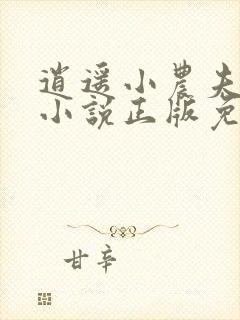 逍遥小農夫
小說正版免
甘辛